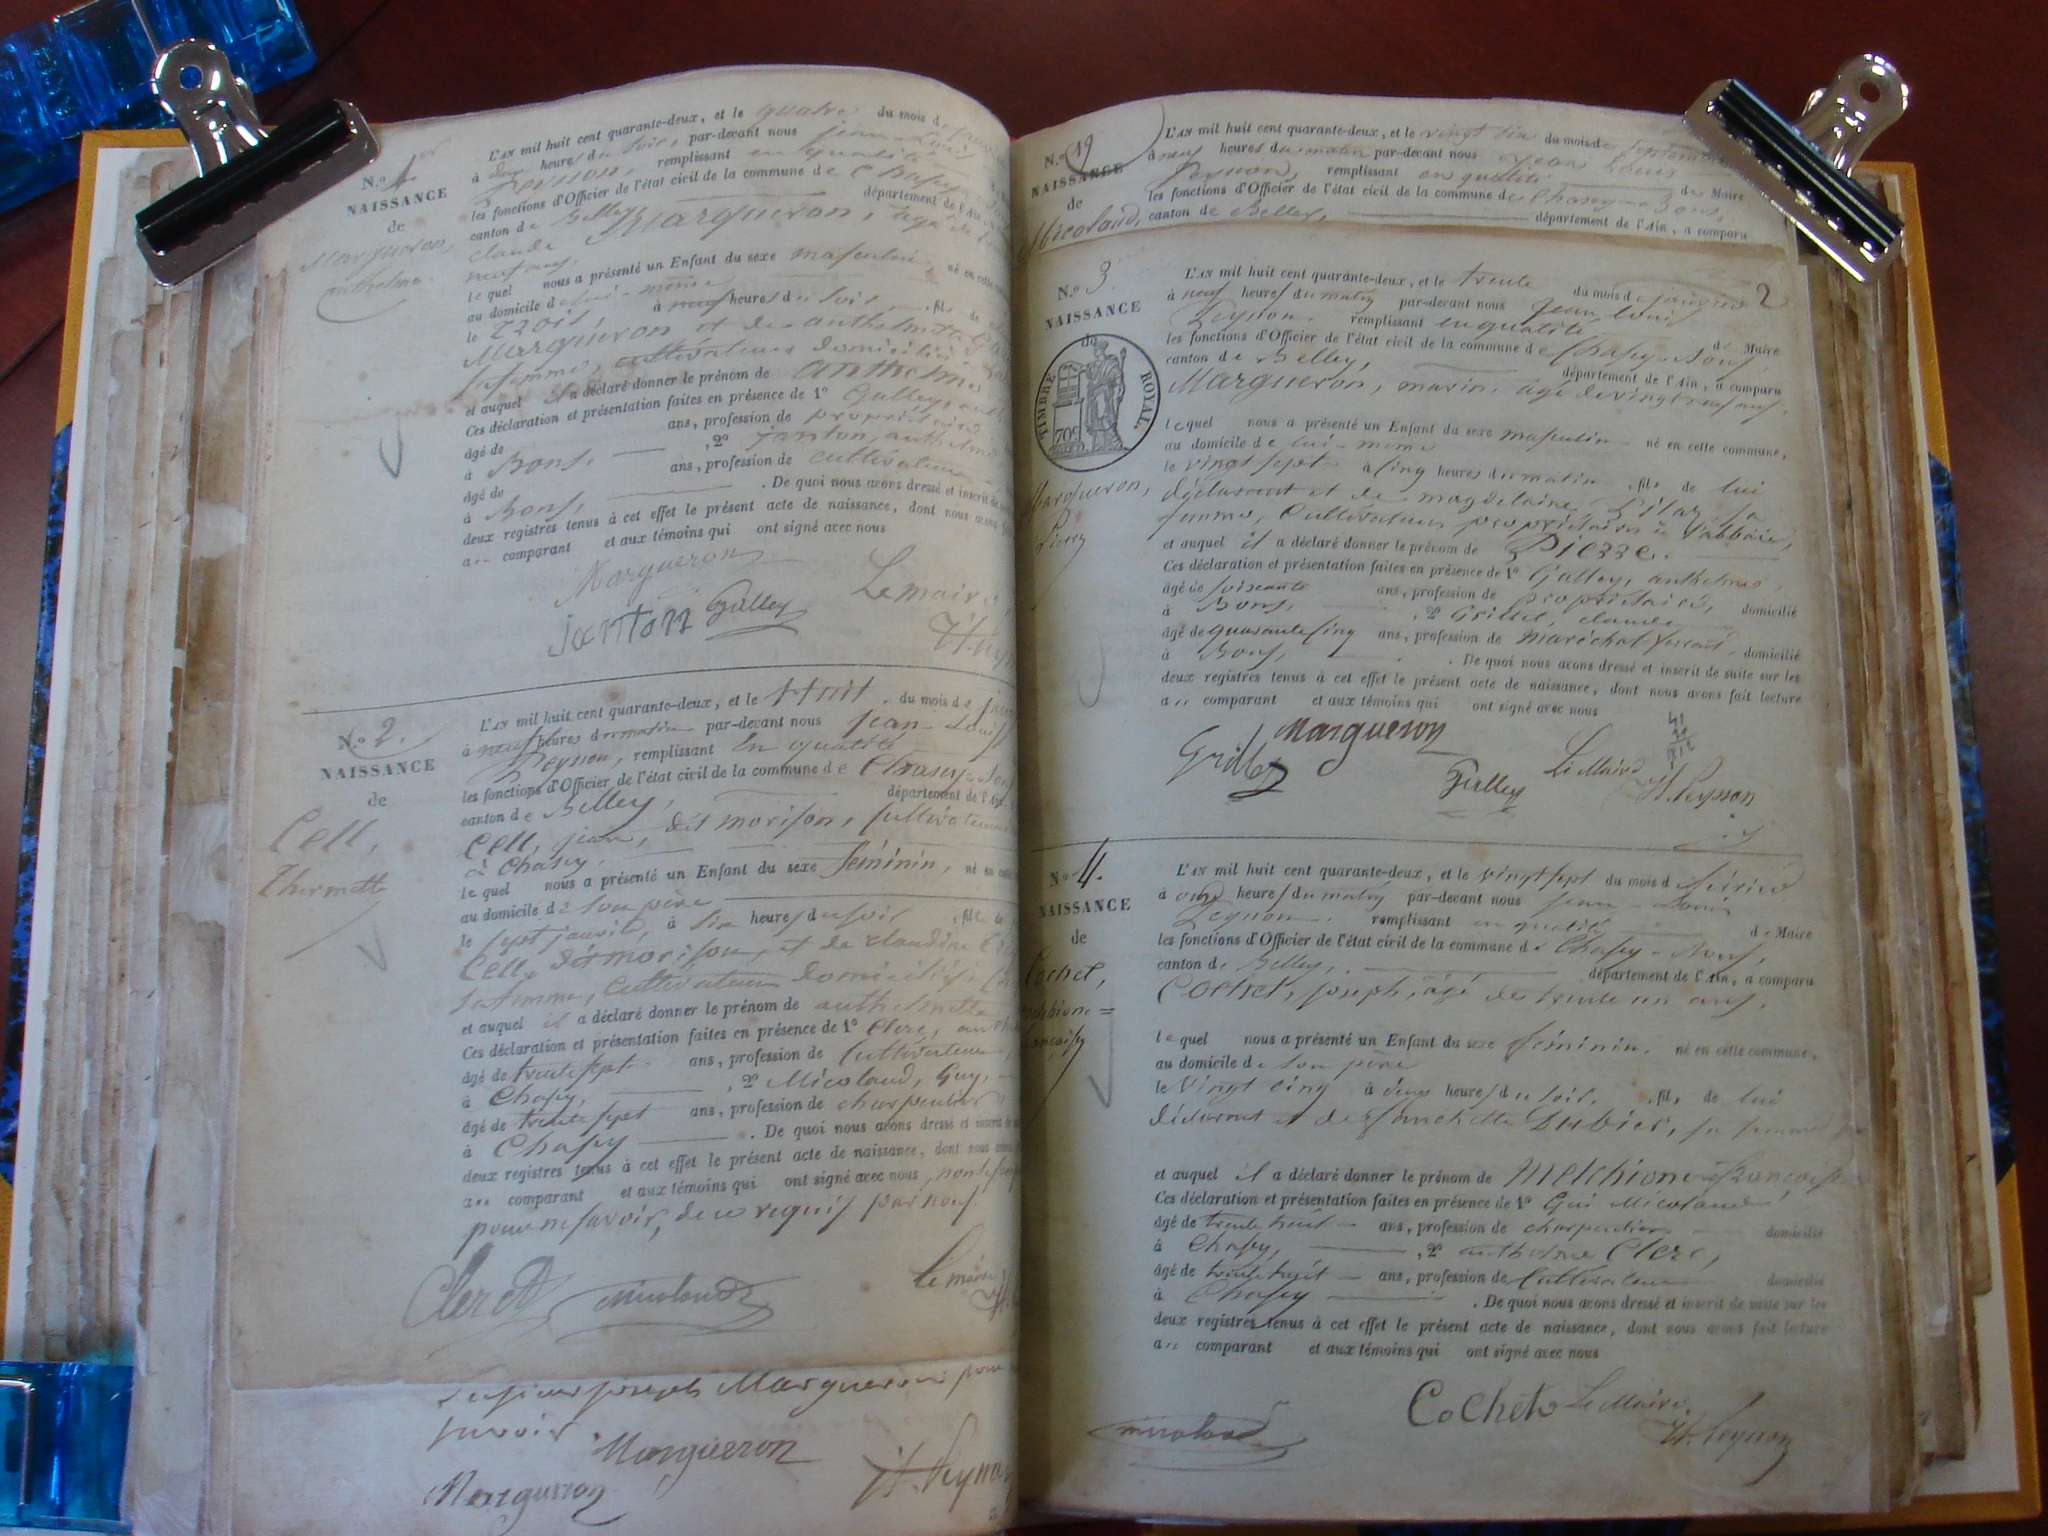 N.o 1er
NAISSANCE
de
Margueron,
anthelme
L'AN mil huit cent quarante-deux, et le quatre du mois de
à deux heures du soir, par-devant nous jean-Louis
Peysson, remplissant en qualité
les fonctions d'Officier de l'état civil de la commune de Chasey
canton de Belley département de l'Ain
claude Margueron, âgé de
neuf ans,
lequel nous a présenté un Enfant du sexe masculin né en cette
au domicile de lui-même
le trois, à neuf heures du soir, fils de
Margueron et de anthelmette
sa femme, cultivateurs domiciliés
et auquel il a déclaré donner le prénom de anthelme
Ces déclaration et présentation faites en présence de 1o Galley,
âgé de ans, profession de propriétaire
à Bons, 2o janton, anthelme
âgé de ans, profession de cultivateur
à Bons, . De quoi nous avons dressé et inscrit de
deux registres tenus à cet effet le présent acte de naissance, dont nous avons
au comparant et aux témoins qui ont signé avec nous
Margueron
Le maire
janton Galley
N.o 2.
NAISSANCE
de
Cell,
Thermette
L'AN mil huit cent quarante-deux, et le Huit du mois de
à neuf heures du matin par-devant nous jean-Louis
Peysson, remplissant En qualité
les fonctions d'Officier de l'état civil de la commune de Chasey-
canton de Belley, département de l'Ain
Cell, jean, dit morison, cultivateur
à Chasey,
lequel nous a présenté un Enfant du sexe féminin, né en
au domicile de son père
le sept janvier, à six heures du soir, fille de
Cell, dit morison, et de claudine
sa femme, cultivateurs domiciliés
et auquel il a déclaré donner le prénom de anthelmette
Ces déclaration et présentation faites en présence de 1o Clerc,
âgé de trente sept ans, profession de Cultivateur
à Chasey, , 2o Micoland, Guy,
âgé de trente sept ans, profession de charpentier
à Chasey . De quoi nous avons dressé et inscrit de
deux registres tenus à cet effet le présent acte de naissance, dont nous
au comparant et aux témoins qui ont signé avec nous, non le
pour ne savoir, de ce requis par nous
Clerc A micoland
Le maire
joseph Margueron pour
savoir.
Margueron
Margueron
H. Peysson
N.o 19
NAISSANCE
de
Micoland,
L'AN mil huit cent quarante-deux, et le vingt six du mois de septembre
à neuf heures du matin par-devant nous jean Louis
Peysson, remplissant en qualité de Maire
les fonctions d'Officier de l'état civil de la commune de Chasey-Bons,
canton de Belley, département de l'Ain, a comparu
2
N.o 3
NAISSANCE
de
TIMBRE ROYAL.
70c
Margueron,
Pierre
L'AN mil huit cent quarante-deux, et le trente du mois de janvier
à neuf heures du matin par-devant nous jean louis
Peysson. remplissant en qualité de Maire
les fonctions d'Officier de l'état civil de la commune de Chasey-Bons,
canton de Belley, département de l'Ain, a comparu
Margueron, marin, âgé de vingt neuf ans,
lequel nous a présenté un Enfant du sexe masculin né en cette commune,
au domicile de lui-même
le vingt sept à cinq heures du matin, fils de lui
déclarant et de magdelaine sa
femme, Cultivateurs propriétaires à l'abbaie,
et auquel il a déclaré donner le prénom de Pierre.
Ces déclaration et présentation faites en présence de 1o Galley, anthelme,
âgé de soixante ans, profession de propriétaire, domicilié
à Bons, , 2o Grillet, claude
âgé de quarante cinq ans, profession de maréchal ferrant, domicilié
à Bons, . De quoi nous avons dressé et inscrit de suite sur les
deux registres tenus à cet effet le présent acte de naissance, dont nous avons fait lecture
au comparant et aux témoins qui ont signé avec nous
Margueron
Grillet
Galley
Le Maire
H. Peysson
N.o 4.
NAISSANCE
de
Cochet,
melchione=
françoise
L'AN mil huit cent quarante-deux, et le vingt sept du mois de février
à onze heures du matin par-devant nous jean-Louis
Peysson. remplissant en qualité de Maire
les fonctions d'Officier de l'état civil de la commune de Chasey-Bons,
canton de Belley, département de l'Ain, a comparu
Cochet, joseph, âgé de trente un ans,
lequel nous a présenté un Enfant du sexe féminin, né en cette commune,
au domicile de son père
le Vingt cinq à deux heures du soir, fils de lui
déclarant et de fanchette Dubiez, sa femme
et auquel il a déclaré donner le prénom de Melchione-Françoise
Ces déclaration et présentation faites en présence de 1o Gui Micoland
âgé de trente huit ans, profession de charpentier domicilié
à Chasey, , 2o anthelme Clerc,
âgé de trente sept ans, profession de Cultivateur domicilié
à Chasey . De quoi nous avons dressé et inscrit de suite sur les
deux registres tenus à cet effet le présent acte de naissance, dont nous avons fait lecture
au comparant et aux témoins qui ont signé avec nous
Cochet Le Maire,
micoland
H. Peysson